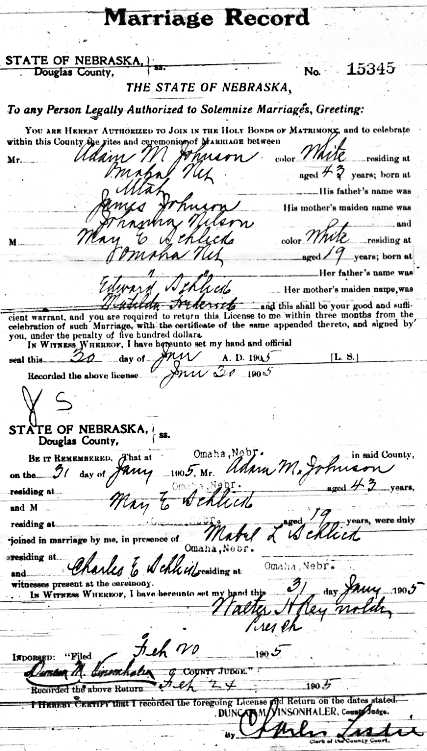 Marriage Record
STATE OF NEBRASKA,
Douglas County, ss. No. 15345
THE STATE OF NEBRASKA,
To any Person Legally Authorized to Solemnize Marriages, Greeting:
YOU ARE HEREBY AUTHORIZED TO JOIN IN THE HOLY BONDS OF MATRIMONY, and to celebrate
within this County the rites and ceremonies of MARRIAGE between
Mr. Adam M. Johnson color White residing at
Omaha Neb aged 43 years; born at
Utah His father's name was
James Johnson His mother's maiden name was
Johanna Nilson and
M May E Schlick color White residing at
Omaha Neb aged 19 years; born at
Her father's name was
Edward Schlick Her mother's maiden name, was
Matilda and this shall be your good and suffi-
cient warrant, and you are required to return this License to me within three months from the
celebration of such Marriage, with the certificate of the same appended thereto, and signed by
you, under the penalty of five hundred dollars.
IN WITNESS WHEREOF, I have hereunto set my hand and official
seal this 30 day of Jan A. D. 1905 [L. S.]
Recorded the above license Jan 30 1905
J S
STATE OF NEBRASKA,
Douglas County, ss.
BE IT REMEMBERED, That at Omaha, Nebr. in said County,
on the 31 day of Jany 1905 Mr. Adam M. Johnson
residing at Omaha, Nebr. aged 43 years,
and M May E Schlick
residing at aged 19 years, were duly
joined in marriage by me, in presence of Mabel L Schlick
residing at Omaha, Nebr.
and Charles E Schlick residing at Omaha, Nebr.
witnesses present at the ceremony.
IN WITNESS WHEREOF, I have hereunto set my hand this 31 day Jany 1905
Walter
INDORSED: "Filed Feb 20 1905
Duncan M. Vinsonhaler COUNTY JUDGE."
Recorded the above Return Feb 24 1905
I HEREBY CERTIFY that I recorded the foregoing License and Return on the dates stated.
DUNCAN M. VINSONHALER, County Judge.
By Charles Leslie
Clerk of the County Court.